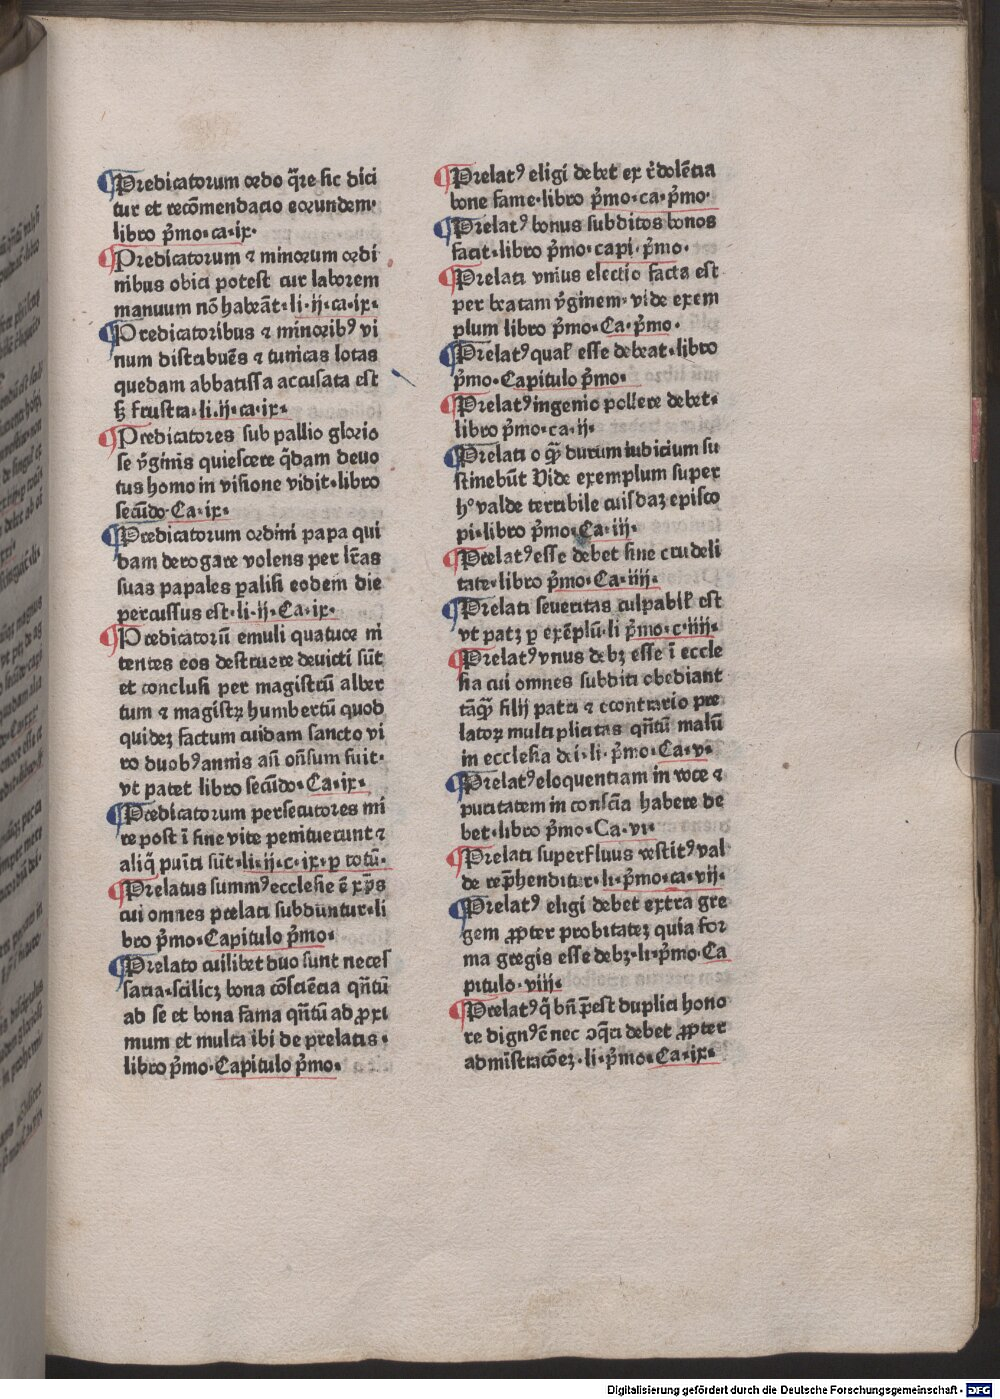 ¶Predicatorum ordo q̄re sic dici
tur et recōmendacio eorundem·
libro p̄mo·ca·ix·
¶Predicatorum ⁊ minorum ordi
nibus obici potest cur laborem
manuum nō habeāt·li·ij·ca·ix·
¶Predicatoribus ⁊ minoribꝰ vi
num distribuēs ⁊ tunicas lotas
quedam abbatissa accusata est
sꝫ frustra·li·ij·ca·ix·
¶Predicatores sub pallio glorio
se v̄ginis quiescere q̄dam deuo
tus homo in visione vidit·libro
secūdo·Ca·ix·
¶Predicatorum ordini papa qui
dam derogare volens per lr̄as
suas papales ꝑalisi eodem die
percussus est·li·ij·Ca·ix·
¶Predicatorū emuli quatuor ni
tentes eos destruere deuicti sūt
et conclusi per magistrū alber
tum ⁊ magistꝝ humbertū quod
quideꝫ factum cuidam sancto vi
ro duobꝰ annis an̄ on̄sum fuit·
vt patet libro secūdo·Ca·ix·
¶Predicatorum persecutores mi
re post ī fine vite penituerunt ⁊
aliq̄ puīti sūt·li·ij·c·ix·ꝑ totū·
¶Prelatus summꝰ ecclesie ē xp̄s
cui omnes prelati subduntur·li
bro p̄mo·Capitulo p̄mo·
¶Prelato cuilibet duo sunt neces
saria·scilicꝫ bona cōsciēcia qn̄tū
ab se et bona fama qn̄tū ad ꝓxi
mum et multa ibi de prelatis·
libro p̄mo·Capitulo p̄mo·
¶Prelatꝰ eligi debet ex r̄dolētia
bone fame·libro p̄mo·ca·p̄mo·
¶Prelatꝰ bonus subditos bonos
facit·libro p̄mo·capi·p̄mo·
¶Prelati vnius electio facta est
per beatam v̄ginem·vide exem
plum libro p̄mo·Ca·p̄mo·
¶Prelatꝰ qual' esse debeat·libro
p̄mo·Capitulo p̄mo·
¶Prelatꝰ ingenio pollere debet·
libro p̄mo·ca·ij·
¶Prelati o qꝫ̄ durum iudicium su
stinebūt Vide exemplum super
hꝰ valde terribile cuisdaꝫ episco
pi·libro p̄mo·Ca·iij·
¶Prelatꝰ esse debet sine crudeli
tate·libro p̄mo·Ca·iiij·
¶Prelati seueritas culpabil' est
vt patꝫ ꝑ exēplū·li p̄mo·c·iiij·
¶Prelatꝰ vnus debꝫ esse ī eccle
sia cui omnes subditi obediant
tāqꝫ̄ filij patri ⁊ econtrario pre
latoꝝ multiplicitas qn̄tū malū
in ecclesia dei·li·p̄mo·Ca·v·
¶Prelatꝰ eloquentiam in voce ⁊
puritatem in consciā habere de
bet·libro p̄mo·Ca·vi·
¶Prelati superfluus vestitꝰ val
de rep̄henditur·li·p̄mo·ca·vij·
¶Prelatꝰ eligi debet extra gre
gem ꝓpter probitateꝫ quia for
ma gregis esse debꝫ·li·p̄mo·Ca
pitulo·viij·
¶Prelatꝰ q̄ bn̄ p̄est duplici hono
re dignꝰ ē nec ↄq̄ri debet ꝓpter
admīstracōeꝫ·li·p̄mo·Ca·ix·
Digitalisierung gefördert durch die Deutsche Forschungsgemeinschaft - DFG